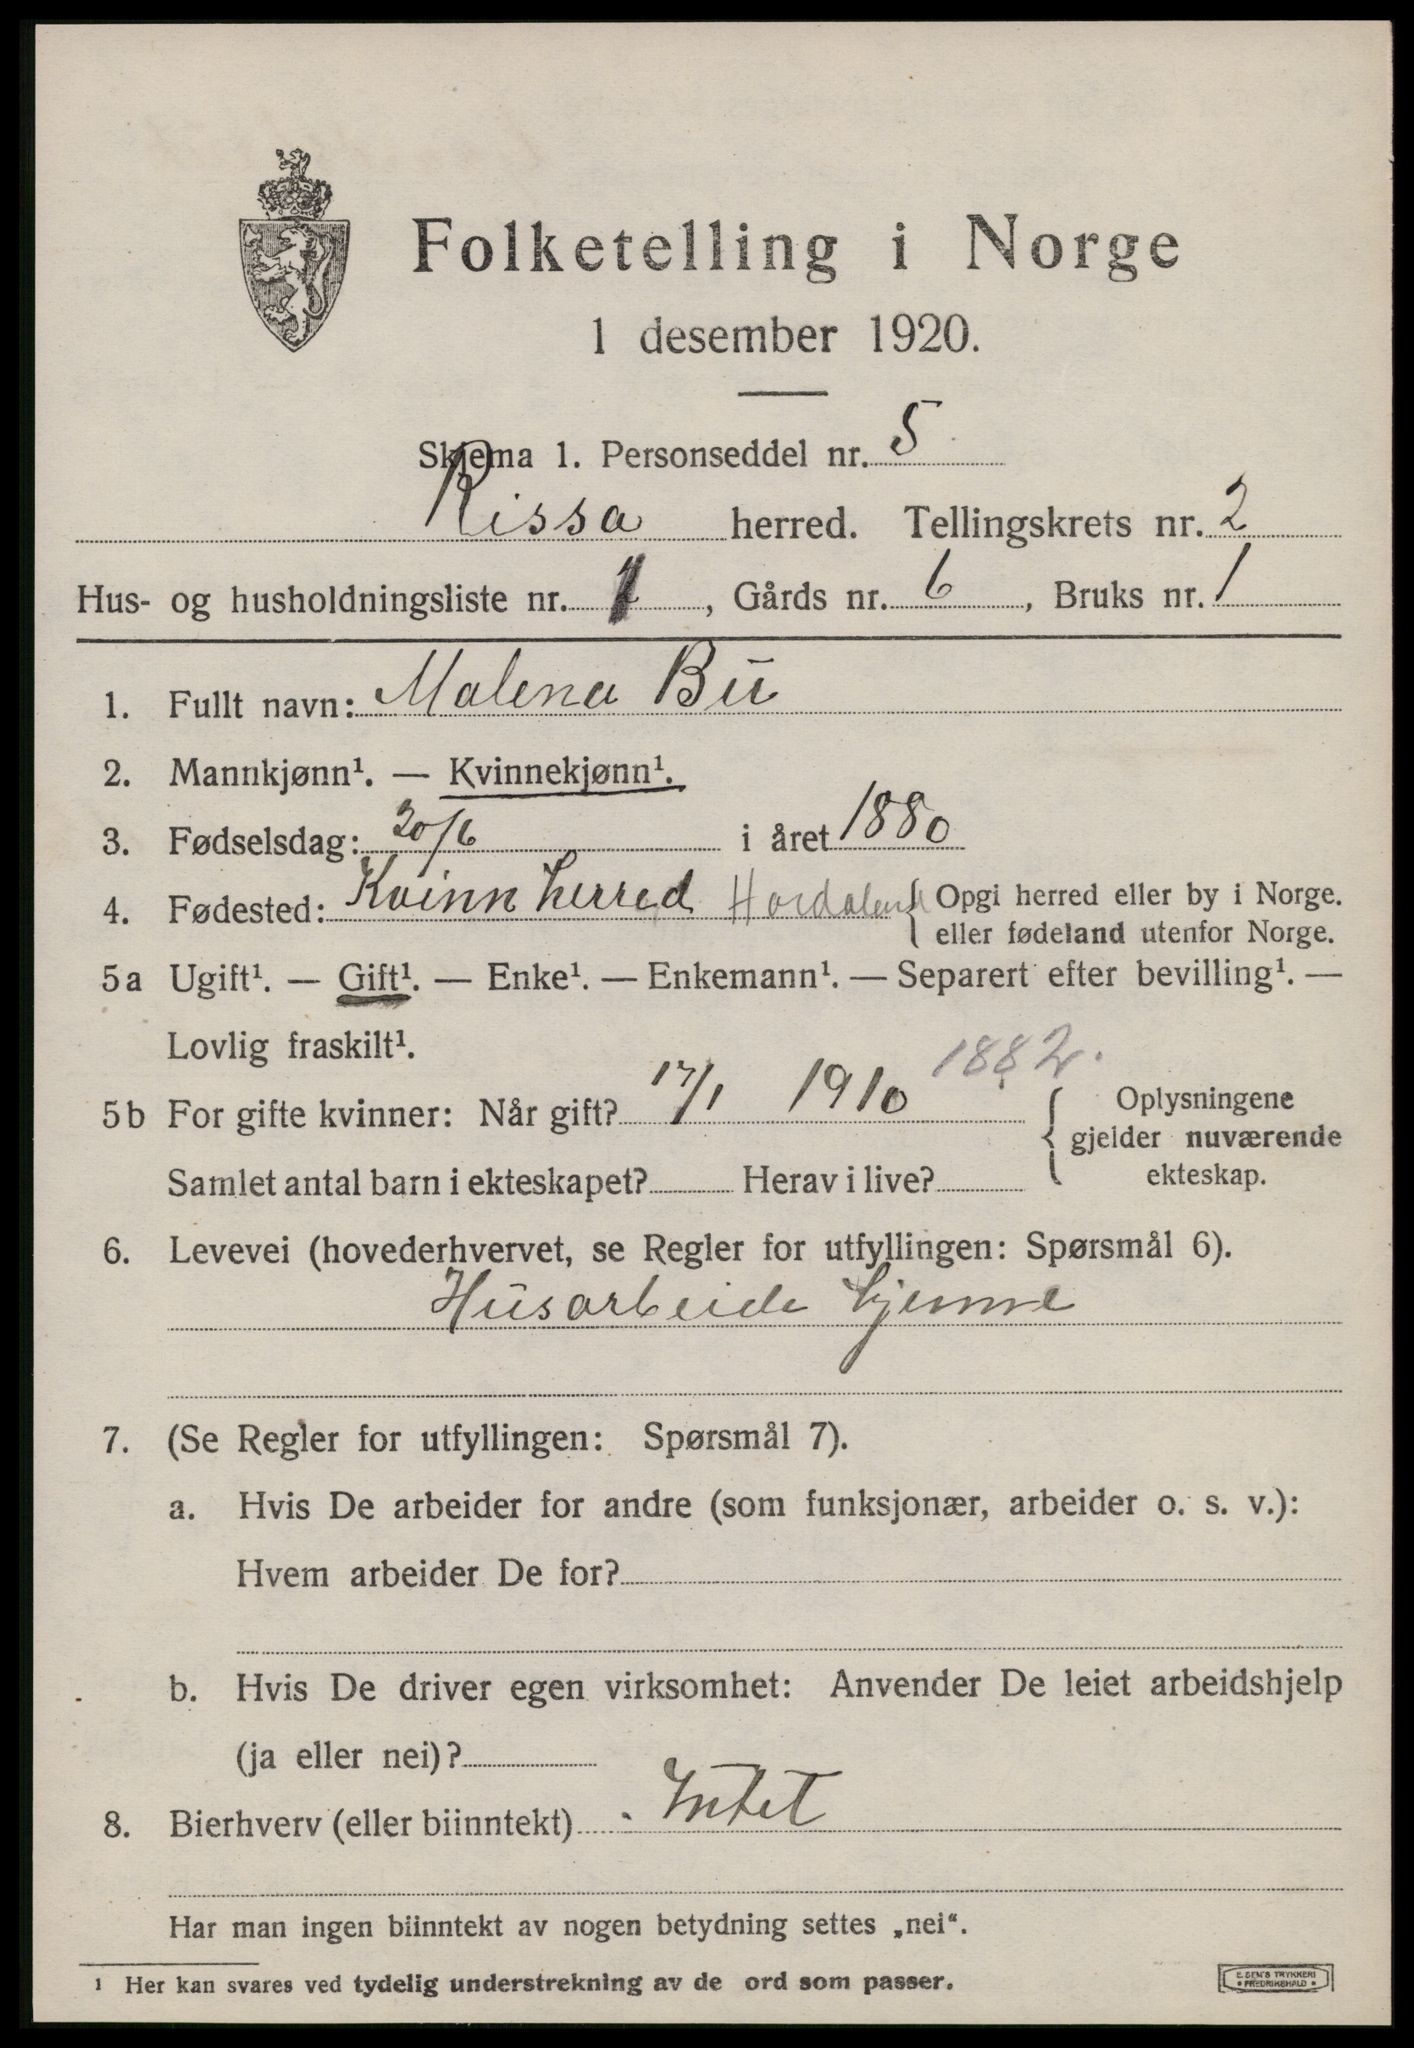 Folketelling i Norge
1 desember 1920.
Skjema 1. Personseddel nr. 5
Rissa herred. Tellingskrets nr. 2
Hus- og husholdningsliste nr. 1, Gårds nr. 6, Bruks nr. 1
1. Fullt navn: Malena Bū
2. Mannkjønn¹. — Kvinnekjønn¹.
3. Fødselsdag: 20/6 i året 1880
4. Fødested: Kvinnherred Hordaland { Opgi herred eller by i Norge.
eller fødeland utenfor Norge.
5a Ugift¹. — Gift¹. — Enke¹. — Enkemann¹. — Separert efter bevilling¹. —
Lovlig fraskilt¹.
1882.
5b For gifte kvinner: Når gift? 17/1 1910
Samlet antal barn i ekteskapet? Herav i live?
{ Oplysningene
gjelder nuværende
ekteskap.
6. Levevei (hovederhvervet, se Regler for utfyllingen: Spørsmål 6).
Hūsarbeide hjemme
7. (Se Regler for utfyllingen: Spørsmål 7).
a. Hvis De arbeider for andre (som funksjonær, arbeider o. s. v.):
Hvem arbeider De for?
b. Hvis De driver egen virksomhet: Anvender De leiet arbeidshjelp
(ja eller nei)?
8. Bierhverv (eller biinntekt) Intet
Har man ingen biinntekt av nogen betydning settes „nei“.
¹ Her kan svares ved tydelig understrekning av de ord som passer.
E. SEM'S TRYKKERI
FREDRIKSHALD